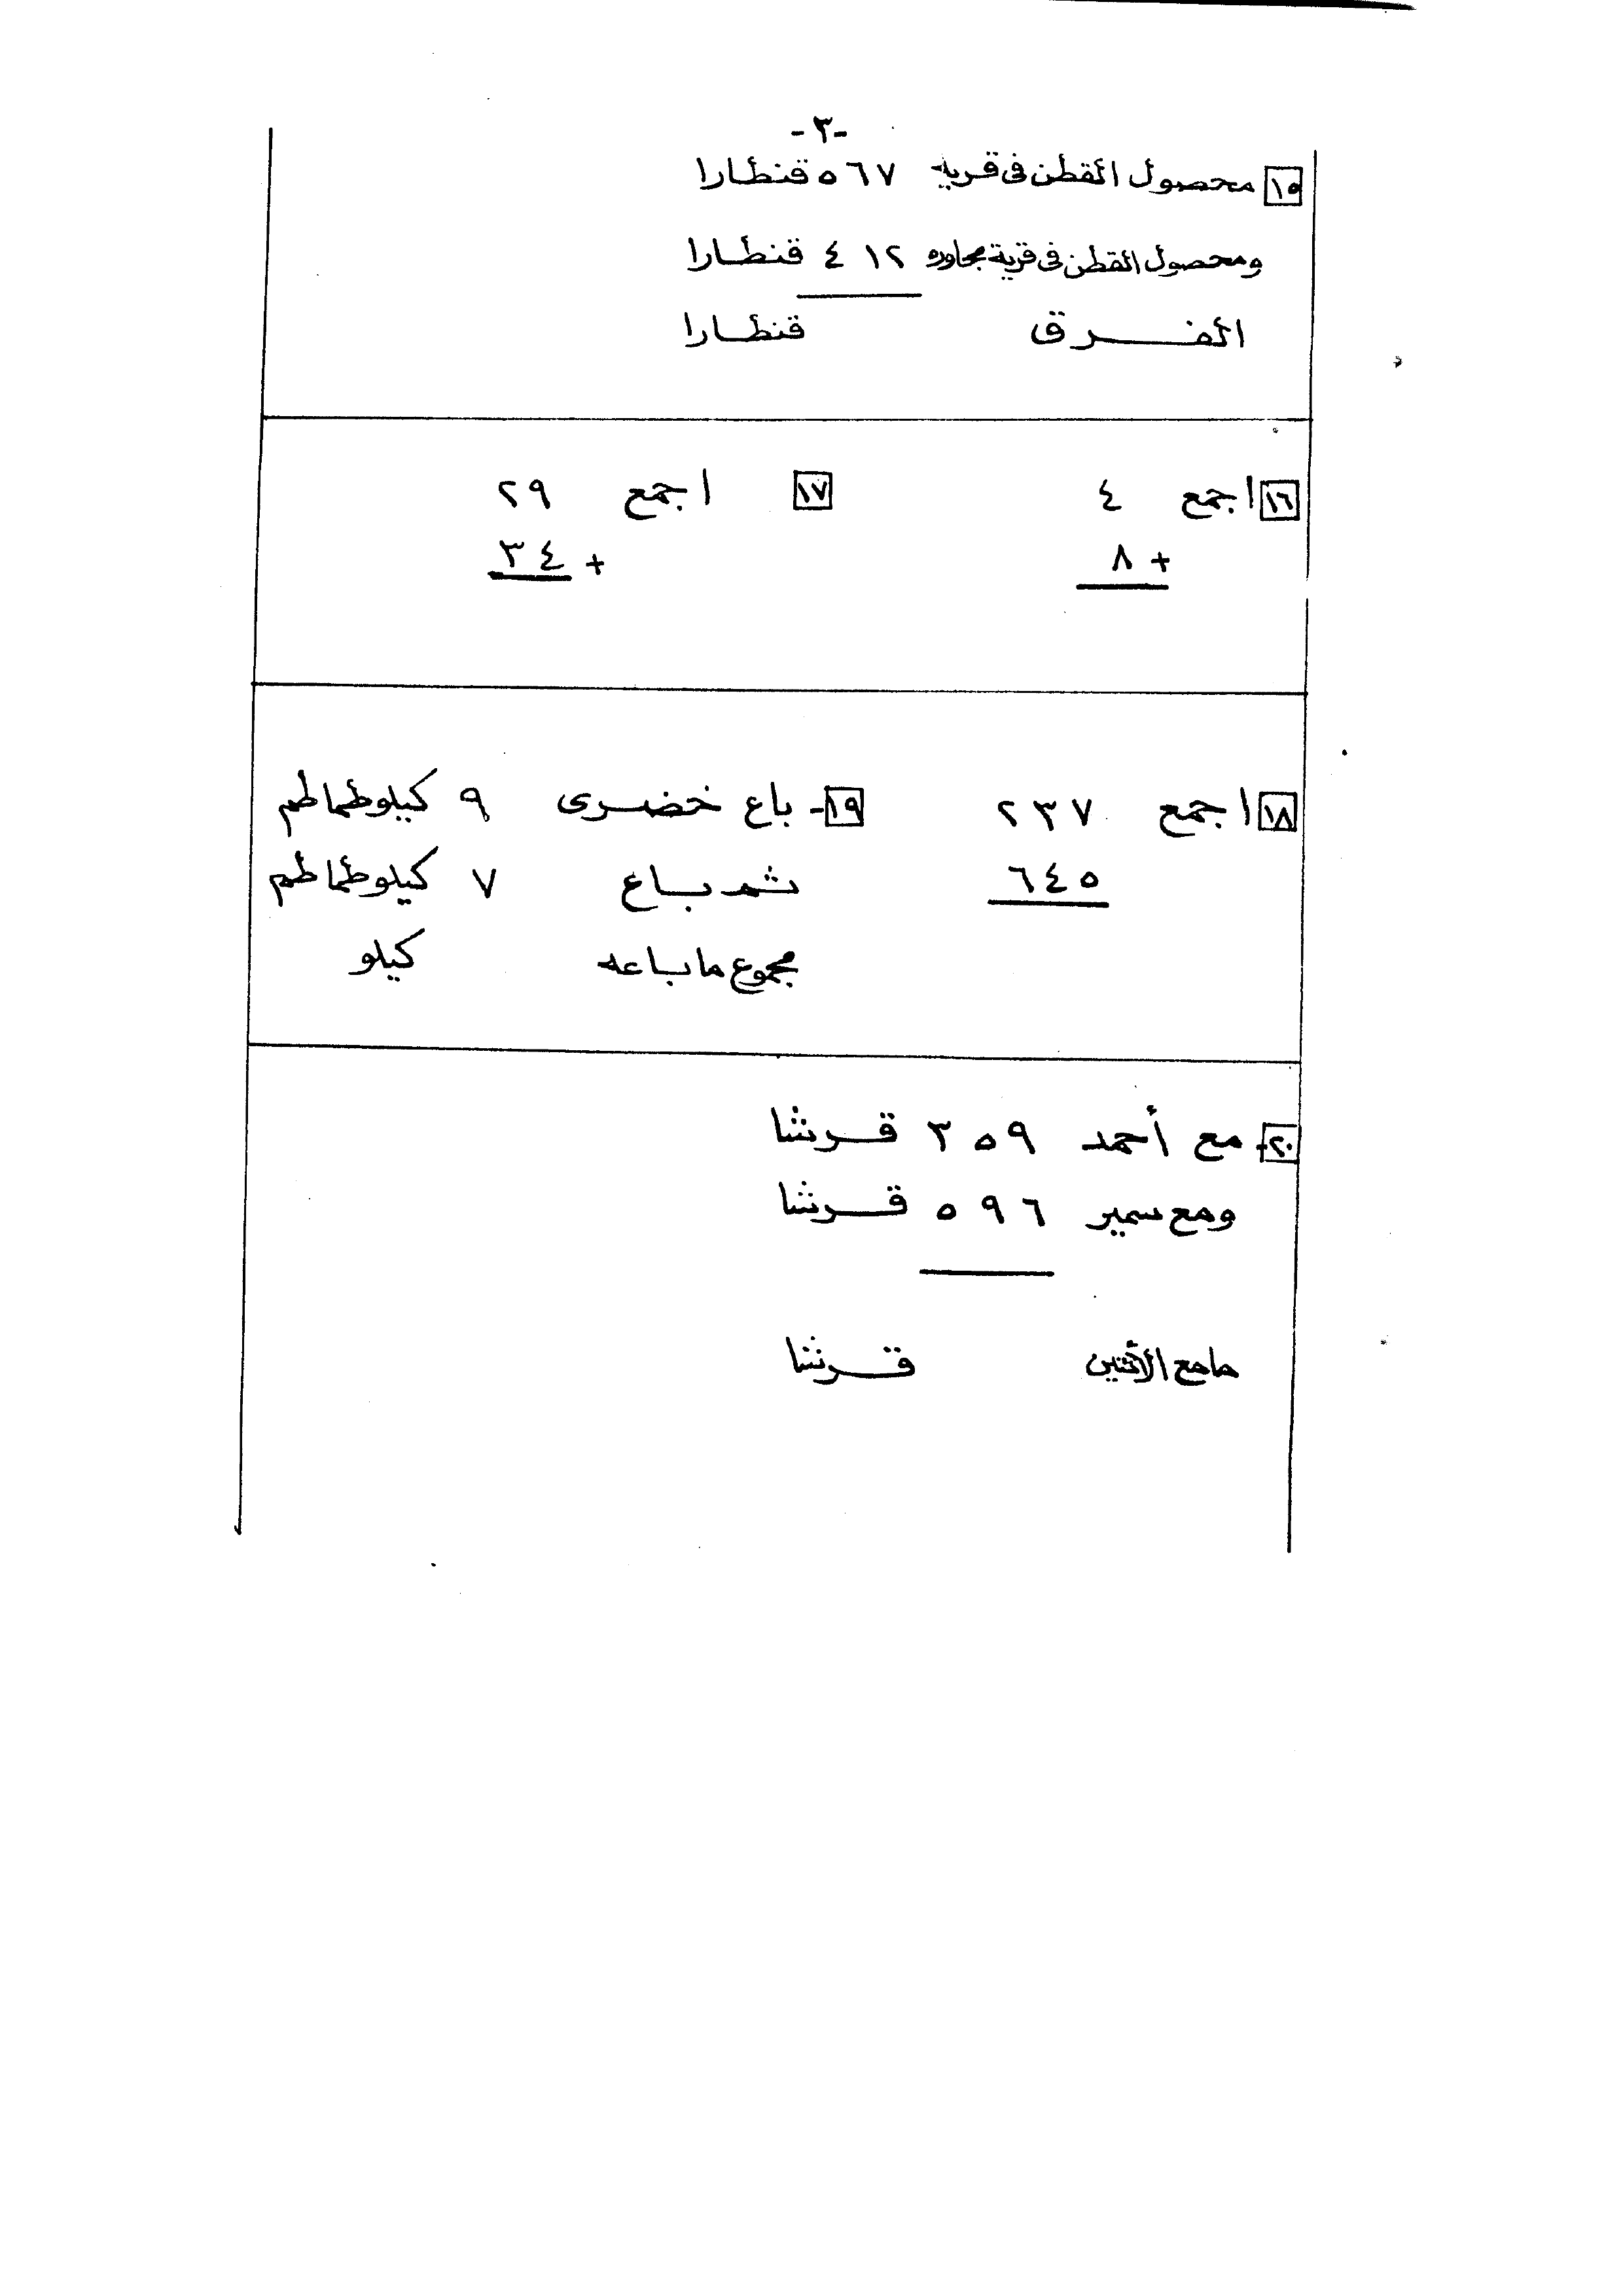 -٣-
١٥ محصول القطن فى قرية ٥٦٧ قنطارا
ومحصول القطن فى قرية مجاوره ٤١٢ قنطارا
الفرق قنطارا
١٦ اجمع ٤
+ ٨
١٧ اجمع ٢٩
+ ٣٤
١٨ اجمع ٢٣٧
٦٤٥
١٩- باع خضرى ٩ كيلو طماطم
ثم باع ٧ كيلو طماطم
مجموع ما باعه كيلو
٢٠- مع أحمد ٣٥٩ قرشا
ومع سمير ٥٩٦ قرشا
ما مع الأثنين قرشا